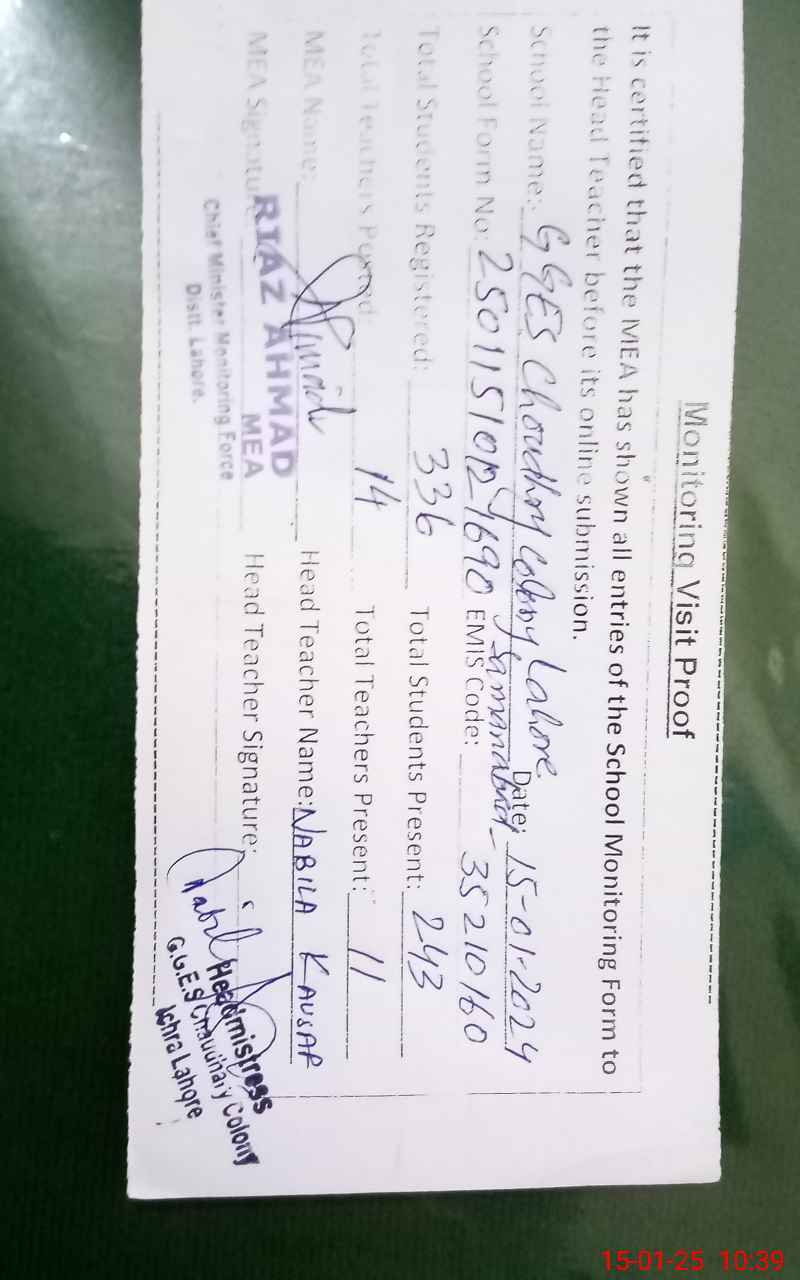 Monitoring Visit Proof
It is certified that the MEA has shown all entries of the School Monitoring Form to
the Head Teacher before its online submission.
School Name: GGES Choudhry colony Lahore Date: 15-01-2024
Samanabad
School Form No: EMIS Code: 35210160
Total Students Registered: 336 Total Students Present: 243
Total Teachers Posted: 14 Total Teachers Present: 11
MEA Name: Head Teacher Name: NABILA KAUSAR
MEA Signature Head Teacher Signature:
RIAZ AHMAD
MEA
Chief Minister Monitoring Force
Distt. Lahore.
Headmistress
G.G.E.S Chaudhary Colony
Ichra Lahore
15-01-25 10:39